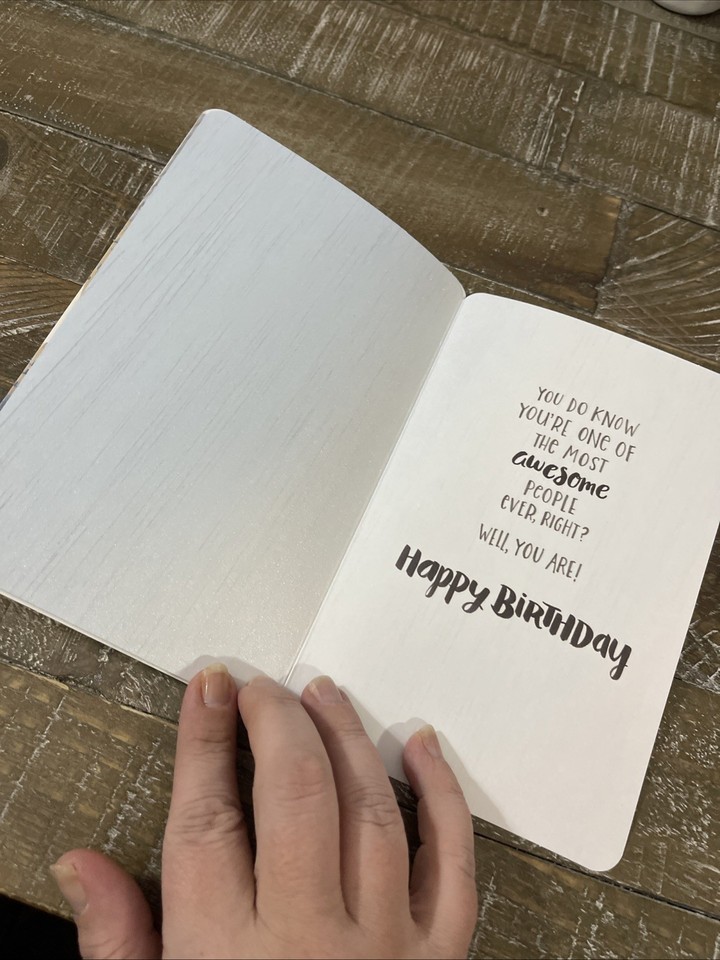 YOU DO KNOW
YOU'RE ONE OF
THE MOST
awesome
PEOPLE
EVER, RIGHT?
WELL, YOU ARE!
Happy BIRTHDay